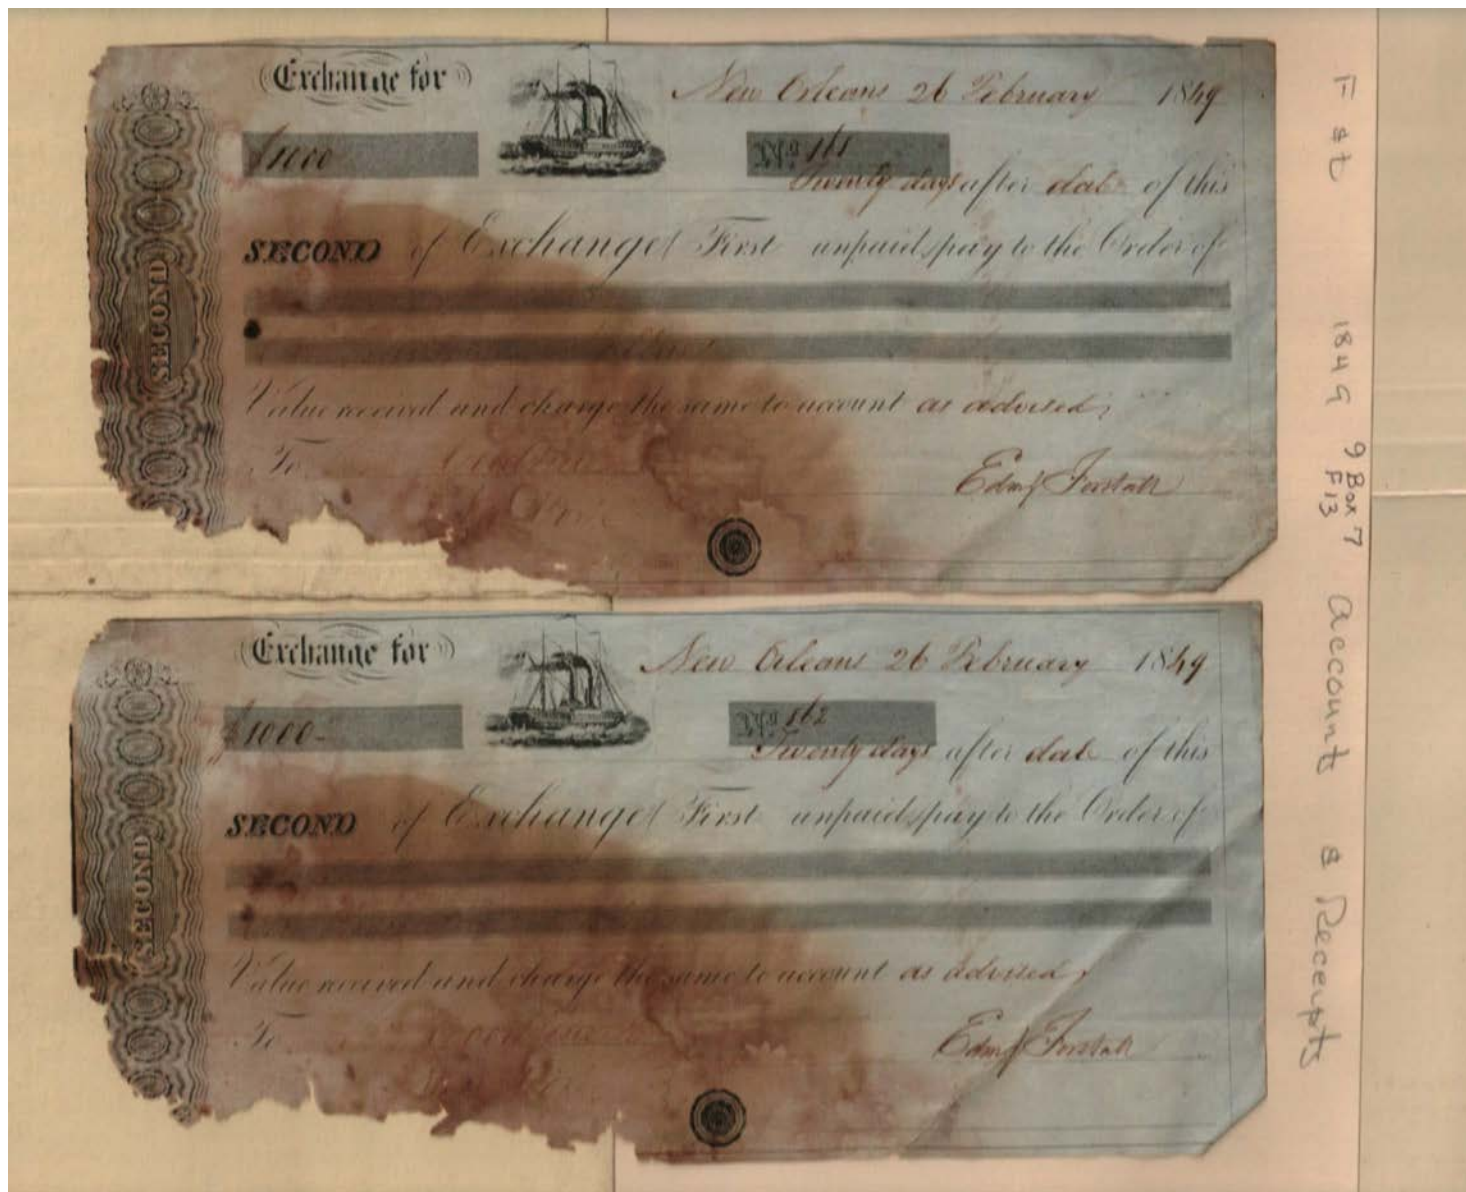 Exchange for
New Orleans 26 February 1849
$1000
No. 161
Twenty days after date of this
SECOND of Exchange (First unpaid) pay to the Order of
Value received and charge the same to account as advised,
To
Edmd Forstall
SECOND
Exchange for
New Orleans 26 February 1849
$1000-
No. 162
Twenty days after date of this
SECOND of Exchange (First unpaid) pay to the Order of
Value received and charge the same to account as advised,
To
Edmd Forstall
SECOND
F st 1849 Accounts & Receipts
9 Box 7
F 13